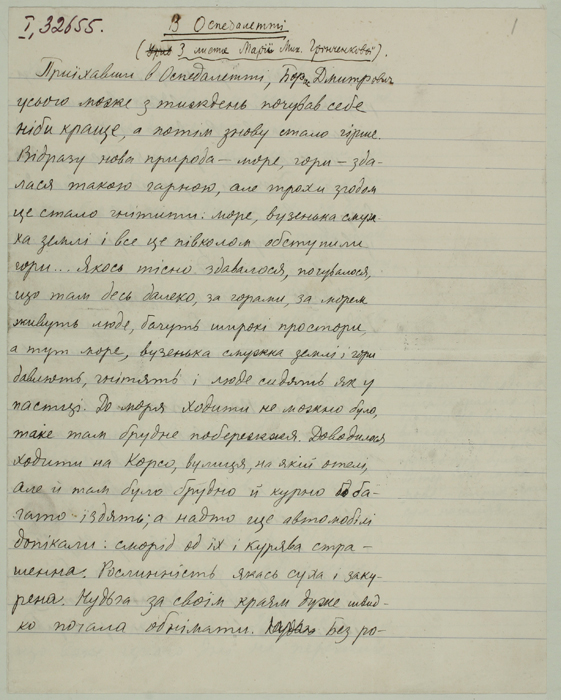 І, 32655.
1
В Оспедалетті
(З листа Марії Мик. Грінченкової).
Приїхавши в Оспедалетті, Бор. Дмитрович
усього може з тиждень почував себе
ніби краще, а потім знову стало гірше.
Відразу нова природа — море, гори — зда-
лася такою гарною, але трохи згодом
це стало гнітити: море, вузенька смуж-
ка землі і все це півколом обступили
гори... Якось тісно здавалося, почувалося,
що там десь далеко, за горами, за морем
живуть люде, бачуть широкі простори,
а тут море, вузенька смужка землі і гори
давлють, гнітять і люде сидять як у
пастці. До моря ходити не можно було,
таке там брудне побережжя. Доводилося
ходити на Корсо, вулиця, на якій отель,
але й там було брудно й курно бо ба-
гато їздять; а надто ще автомобілі
допікали: сморід од їх і курява стра-
шенна. Рослинність якась суха і заку-
рена. Нудьга за своїм краям дуже швид-
ко почала обнімати. Без ро-